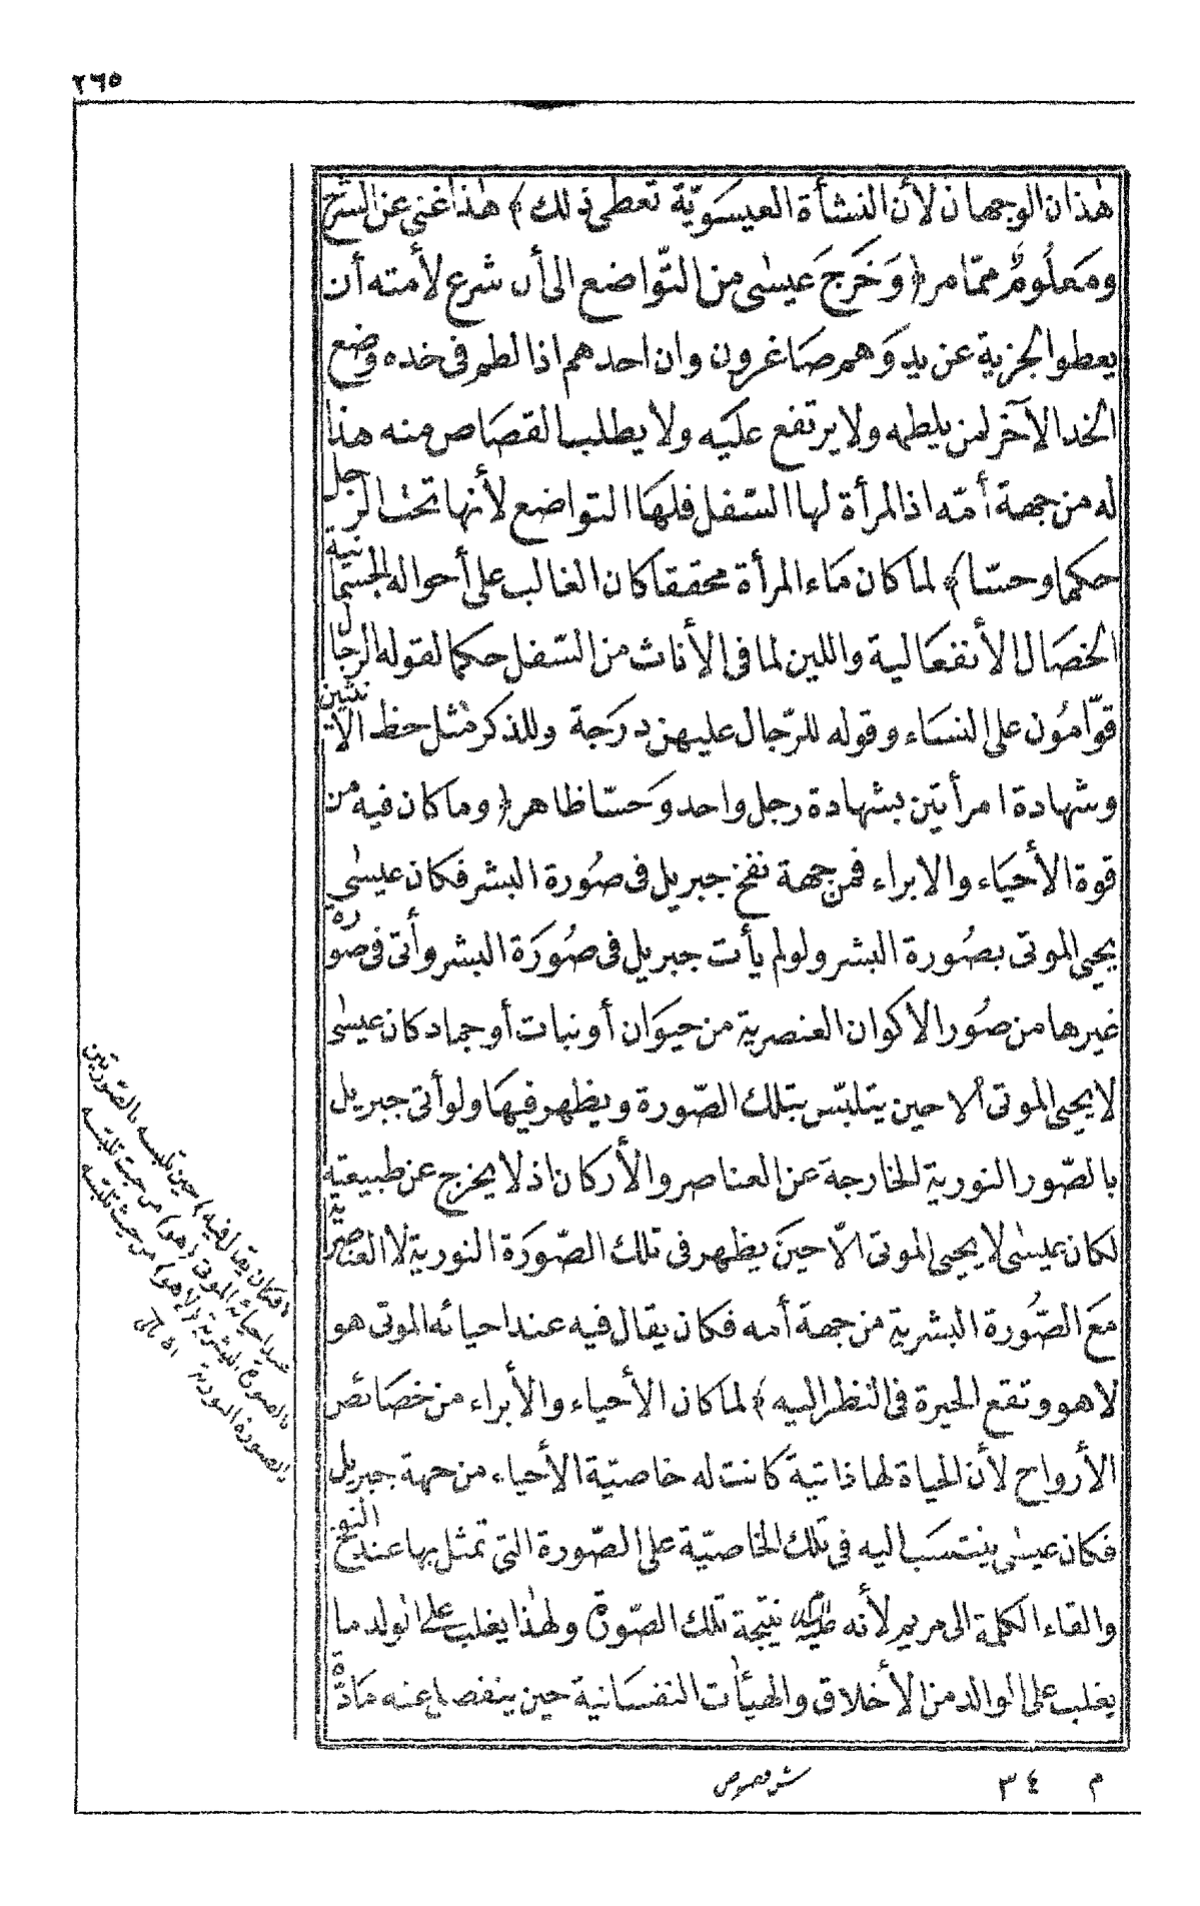 ٢٦٥
هٰذان الوجهان لأن النشأة العيسويّة تعطى ذلك ﴾ هٰذا غنى عن الشرح
ومعلوم ممّا مر ﴿ وخرج عيسٰى من التّواضع الى أن شرع لأمته أن
يعطوا الجزية عن يد وهم صاغرون وان احدهم اذا لطم فى خده وضع
الخد الآخر لمن يلطمه ولا يرتفع عليه ولا يطلب القصاص منه هذا
له من جهة أمّه اذ المرأة لها السّفل فلها التواضع لأنها تحت الرجل
حكما وحسّا ﴾ لما كان ماء المرأة محققا كان الغالب على أحواله الجسمانية
الخصال الأنفعالية واللين لما فى الأناث من السّفل حكما لقوله الرجال
قوّامون على النساء وقوله للرّجال عليهن درجة وللذكر مثل حظ الانثيين
وشهادة امرأتين بشهادة رجل واحد وحسّا ظاهر ﴿ وما كان فيه من
قوة الأحياء والابراء فمن جهة نفخ جبريل فى صورة البشر فكان عيسٰى
يحيى الموتى بصورة البشر ولو لم يأت جبريل فى صورة البشر وأتى فى صورة
غيرها من صور الاكوان العنصرية من حيوان أو نبات أو جماد كان عيسٰى
لا يحيى الموتى الا حين يتلبّس بتلك الصّورة ويظهر فيها ولو أتى جبريل
بالصّور النورية الخارجة عن العناصر والأركان اذ لا يخرج عن طبيعته
لكان عيسٰى لا يحيى الموتى الاّ حين يظهر فى تلك الصّورة النورية لا العنصرية
مع الصّورة البشرية من جهة أمه فكان يقال فيه عند احيائه الموتى هو
لا هو وتقع الحيرة فى النظر اليه ﴾ لما كان الأحياء والأبراء من خصائص
الأرواح لأن الحياة لها ذاتية كانت له خاصيّة الأحياء من جهة جبريل
فكان عيسٰى ينتسب اليه فى تلك الخاصيّة على الصّورة التى تمثل بها عند النفخ
والقاء الكلمة الى مريم لأنه نتيجة تلك الصّورة ولهٰذا يغلب على الولد ما
يغلب على الوالد من الأخلاق والهيئات النفسانية حين ينفصل عنه مادّة
م ٣٤ ش فصوص
(فكان يقال فيه) حين تلبسه بالصّورتين
عند احيائه الموتى (هو) من حيث تلبّسه
بالصورة البشرية (لا هو) من حيث تلبّسه
بالصورة النورية اه بالى